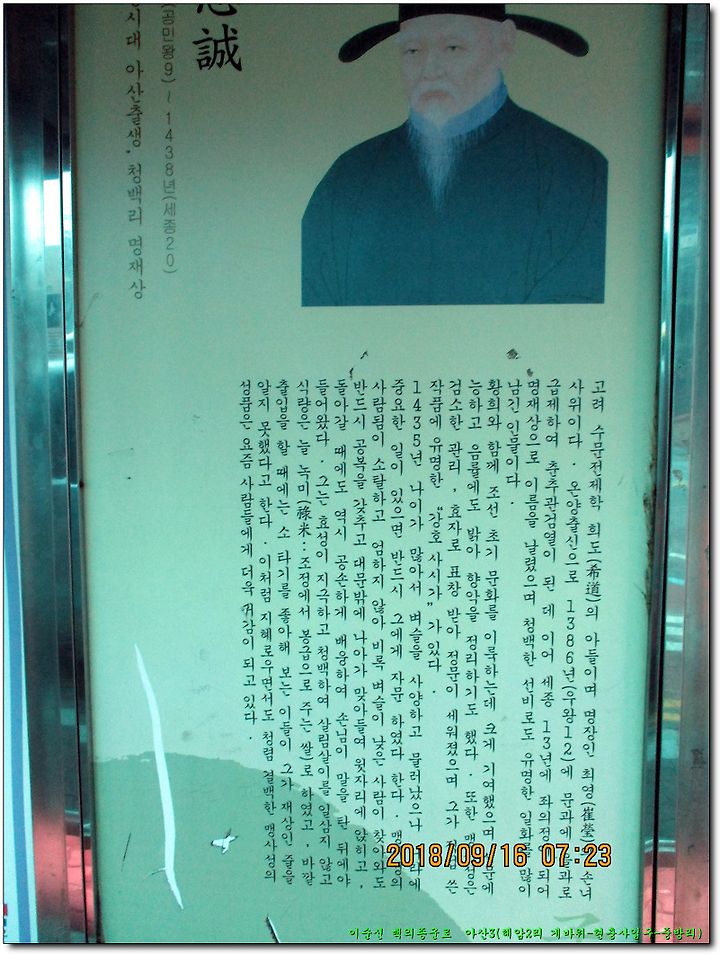 誠
(공민왕9) ~ 1438년(세종20)
시대 아산출생. 청백리 명재상
고려 수문전제학 희도(希道)의 아들이며 명장인 최영(崔瑩) 손녀
사위이다. 온양출신으로 1386년(우왕12)에 문과에 을과로
급제하여 춘추관검열이 된 데 이어 세종 13년에 좌의정이 되어
명재상으로 이름을 날렸으며 청백한 선비로도 유명한 일화를 많이
남긴 인물이다.
황희와 함께 조선 초기 문화를 이룩하는데 크게 기여했으며 에
능하고 음률에도 밝아 향악을 정리하기도 했다. 또한 은
검소한 관리, 효자로 표창 받아 정문이 세워졌으며 그가 쓴
작품에 유명한 "강호 사시가"가 있다.
1435년 나이가 많아서 벼슬을 사양하고 물러났으나 에
중요한 일이 있으면 반드시 그에게 자문 하였다 한다. 의
사람됨이 소탈하고 엄하지 않아 비록 벼슬이 낮은 사람이 찾아와도
반드시 공복을 갖추고 대문밖에 나아가 맞아들여 윗자리에 앉히고,
돌아갈 때에도 역시 공손하게 배웅하여 손님이 말을 탄 뒤에야
들어왔다. 그는 효성이 지극하고 청백하여 살림살이를 일삼지 않고
식량은 늘 녹미(祿米:조정에서 봉급으로 주는 쌀)로 하였고, 바깥
출입을 할 때에는 소 타기를 좋아해 보는 이들이 그가 재상인 줄을
알지 못했다고 한다. 이처럼 지혜로우면서도 청렴 결백한 맹사성의
성품은 요즘 사람들에게 더욱 귀감이 되고 있다.
2018/09/16 07:23
이순신 백의종군로 아산3(해암2리 게바위-현충사입구-중방리)